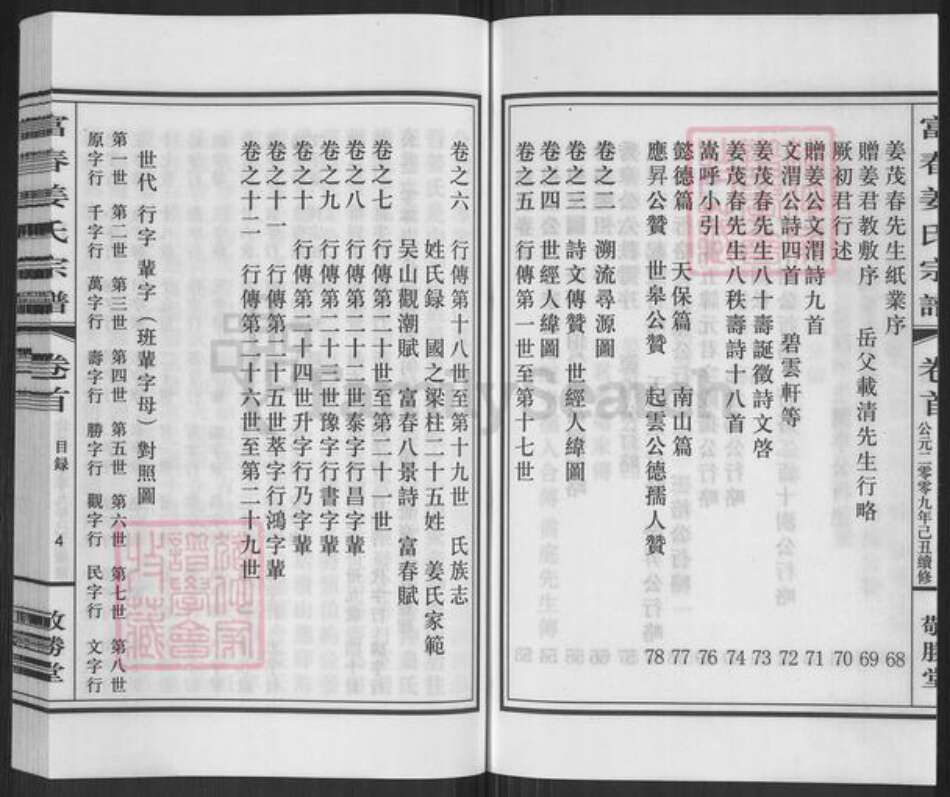 富春姜氏宗譜 卷首 公元二零零九年己丑續修 敬勝堂
姜茂春先生紙業序 68
贈姜君教敷序 岳父載清先生行略 69
厥初君行述 70
贈姜公文渭詩九首 71
文渭公詩四首 碧雲軒等 72
姜茂春先生八十壽誕徵詩文啓 73
姜茂春先生八秩壽詩十八首 74
嵩呼小引 76
懿德篇 天保篇 南山篇 77
應昇公贊 世皋公贊 起雲公德孺人贊 78
卷之二 溯流尋源圖
卷之三 詩文傳贊 世經人緯圖
卷之四 世經人緯圖
卷之五 行傳第一世至第十七世
卷之六 行傳第十八世至第十九世 氏族志
姓氏録 國之梁柱二十五姓 姜氏家範
吴山觀潮賦 富春八景詩 富春賦
卷之七 行傳第二十世至第二十一世
卷之八 行傳第二十二世泰字行昌字輩
卷之九 行傳第二十三世豫字行書字輩
卷之十 行傳第二十四世升字行乃字輩
卷之十一 行傳第二十五世萃字行鴻字輩
卷之十二 行傳第二十六世至第二十九世
世代 行字 輩字（班輩字母）對照圖
第一世 第二世 第三世 第四世 第五世 第六世 第七世 第八世
原字行 千字行 萬字行 壽字行 勝字行 觀字行 民字行 文字行
富春姜氏宗譜 卷首 目録 4 敬勝堂
FamilySearch